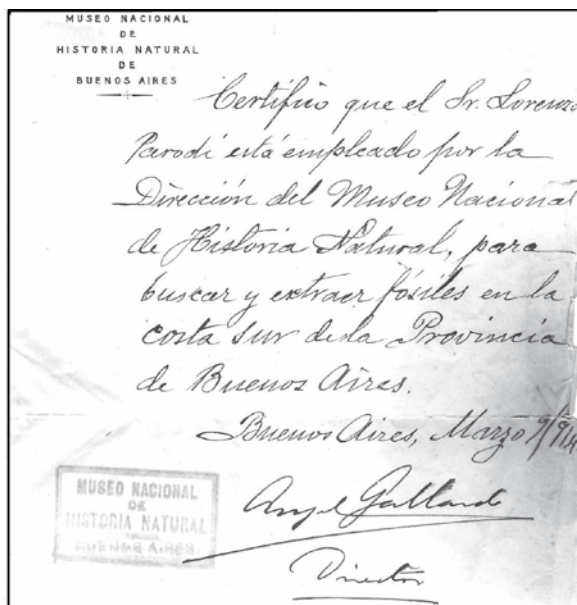 MUSEO NACIONAL
DE
HISTORIA NATURAL
DE
BUENOS AIRES
Certifico que el Sr. Lorenzo
Parodi está empleado por la
Dirección del Museo Nacional
de Historia Natural, para
buscar y extraer fósiles en la
costa sur de la Provincia
de Buenos Aires.
Buenos Aires, Marzo 9/914
Angel Gallardo
Director
MUSEO NACIONAL
DE
HISTORIA NATURAL
BUENOS AIRES